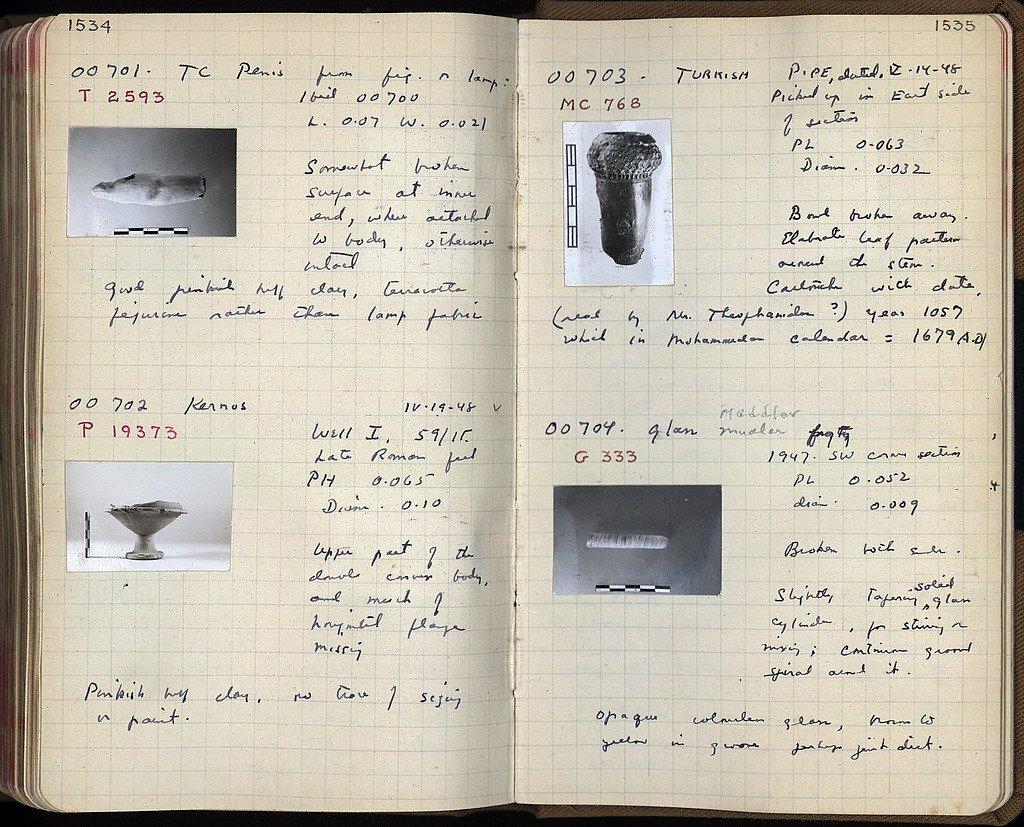 1534
OO 701. TC Penis from fig. or lamp:
T 2593
Ibid OO 700
L. 0.07 W. 0.021
Somewhat broken
surface at inner
end, where attached
to body, otherwise
intact
Good pinkish buff clay, terracotta
figurine rather than lamp fabric
OO 702 Kernos IV-19-48 v
P 19373
Well I, 59/ΙΓ
Late Roman fill
PH 0.065
Diam. 0.10
Upper part of the
double convex body,
and much of
horizontal flange
missing
Pinkish buff clay, no trace of
or paint.
1535
OO 703. TURKISH PIPE, dated, IV-14-48
MC 768
Picked up in East side
of section
PL 0.063
Diam. 0.032
Bowl broken away.
Elaborate leaf pattern
around the stem.
Cartouche with date,
(read by Mr. Theophanides ?) year 1057
which in Mohammedan calendar = 1679 A.D)
OO 704. glass
G 333
1947. SW corner section
PL 0.052
diam. 0.009
Broken both ends.
Slightly tapering solid glass
cylinder, for stirring or
mixing; continuous ground
spiral around it.
Opaque colourless glass, brown to
yellow in groove perhaps just dirt.